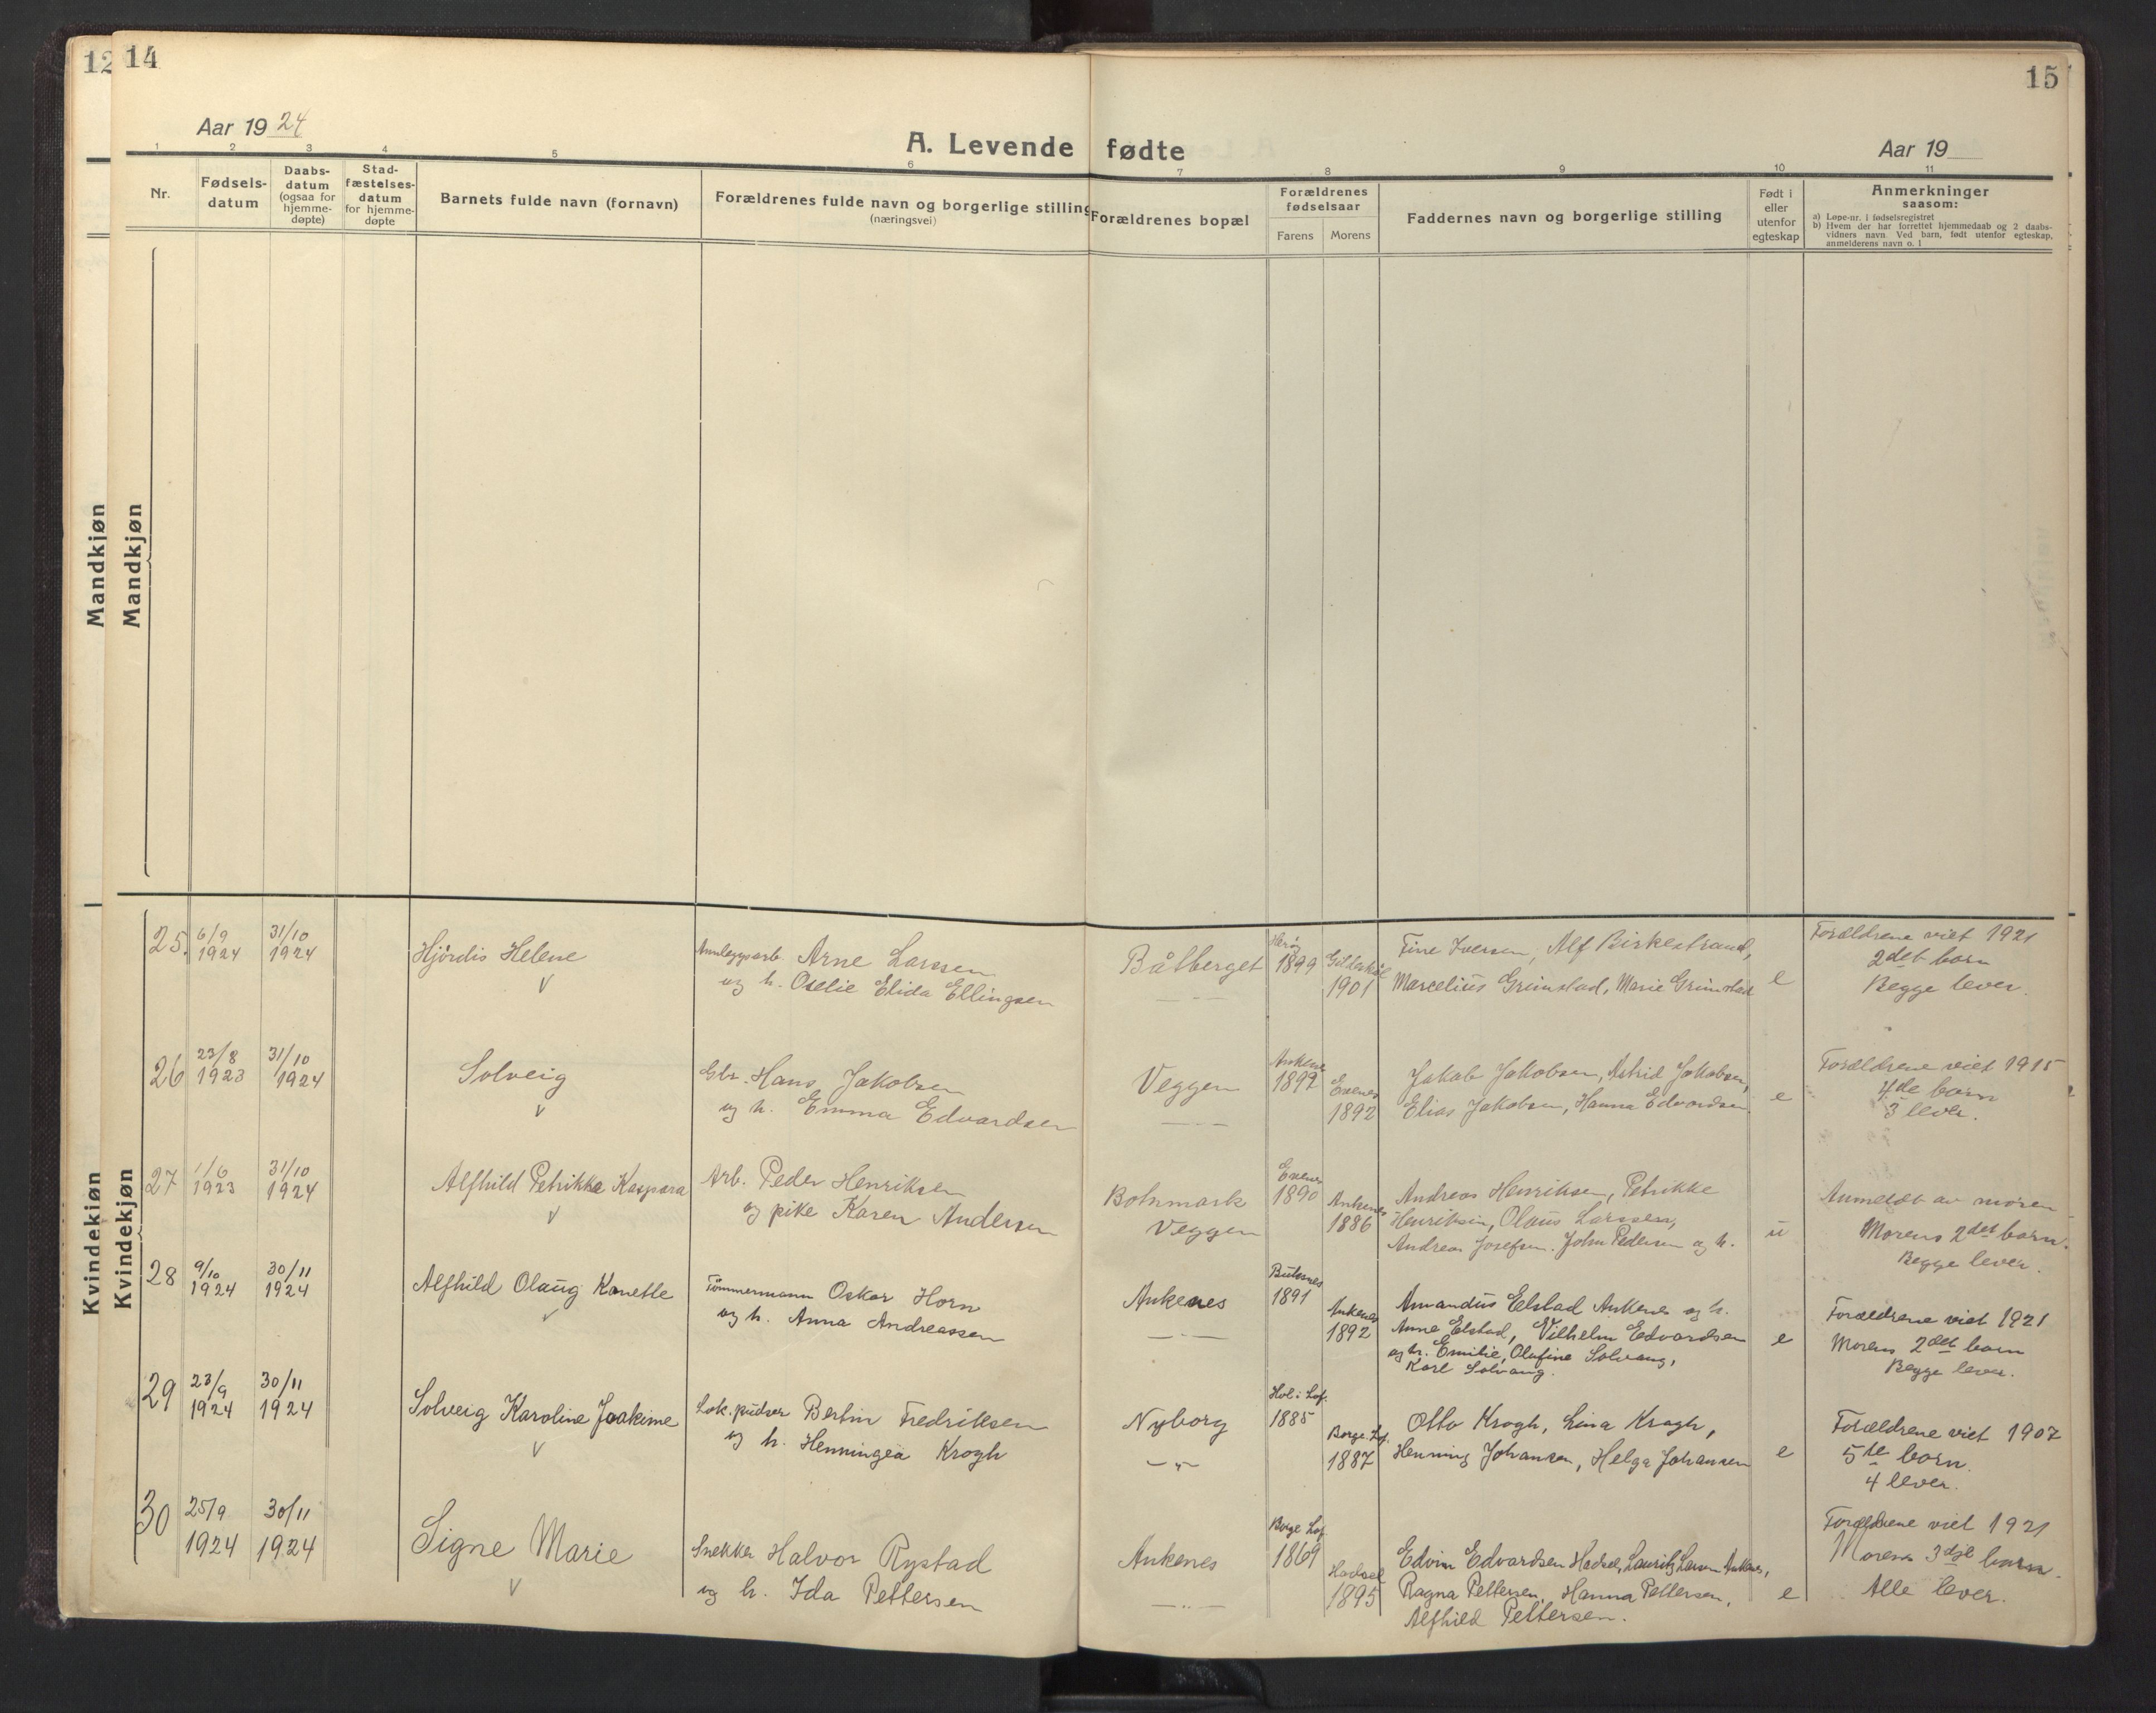 12
14
15
Aar 1924
A. Levende fødte
Aar 19
1 2 3 4 5 6 7 8 9 10 11
Nr.
Fødsels-
datum
Daabs-
datum
(ogsaa for
hjemme-
døpte)
Stad-
fæstelses-
datum
for hjemme-
døpte
Barnets fulde navn (fornavn)
Forældrenes fulde navn og borgerlige stilling
(næringsvei)
Forældrenes bopæl
Forældrenes
fødselsaar
Farens Morens
Faddernes navn og borgerlige stilling
Født i
eller
utenfor
egteskap
Anmerkninger
saasom:
a) Løpe-nr. i fødselsregistret
b) Hvem der har forrettet hjemmedaab og 2 daabs-
vidners navn. Ved barn, født utenfor egteskap,
anmelderens navn o. l
Mandkjøn
Mandkjøn
Kvindekjøn
Kvindekjøn
25. 6/9 1924 31/10 1924
Hjördis Helene
Anleggsarb. Arne Larssen
og h. Oselie Elida Ellingsen
Båtberget
Herøy 1899
Gildeskål 1901
Tine Iversen, Alf Birkestrand,
Marcelius Grimstad, Marie Grimstad
e
Forældrene viet 1921
2det barn
Begge lever.
26 23/8 1923 31/10 1924
Solveig
Gbr. Hans Jakobsen
og h. Emma Edvardsen
Veggen
Ankenes 1892
Evenes 1892
Jakob Jakobsen, Astrid Jakobsen,
Elias Jakobsen, Hanna Edvardsen.
e
Forældrene viet 1915
4de barn
3 lever.
27 1/6 1923 31/10 1924
Alfhild Petrikke Kaspara
Arb. Peder Henriksen
og pike Karen Andersen
Botnmark
Veggen
Evenes 1890
Ankenes 1886
Andreas Henriksen, Petrikke
Henriksen, Olaus Larssen,
Andreas Josefsen. John Pedersen og h.
u
Anmeldt av moren
Morens 2det barn.
Begge lever.
28 9/10 1924 30/11 1924
Alfhild Olaug Kanette
Tömmermann Oskar Horn
og h. Anna Andreassen
Ankenes
1891
Ankenes 1892
Amandus Elstad Ankenes og h.
Anne Elstad, Vilhelm Edvardsen
og h. Emilie, Olufine Solvang,
Karl Solvang.
e
Forældrene viet 1921
Morens 2det barn
Begge lever.
29 23/9 1924 30/11 1924
Solveig Karoline Joakime
Lok.pudser Bertin Fredriksen
og h. Henningea Krogh
Nyborg
Hol i Lof. 1885
Borge Lof. 1887
Otto Krogh, Lina Krogh,
Henning Johansen, Helga Johansen
e
Forældrene viet 1907
5te barn.
4 lever.
30 25/9 1924 30/11 1924
Signe Marie
Snekker Halvor Rystad
og h. Ida Pettersen
Ankenes
Borge Lof. 1869
Hadsel 1895
Edvin Edvardsen Hadsel, Lauritz Larsen Ankenes,
Ragna Pettersen, Hanna Pettersen,
Alfhild Pettersen.
e
Forældrene viet 1921
Morens 3dje barn.
Alle lever.